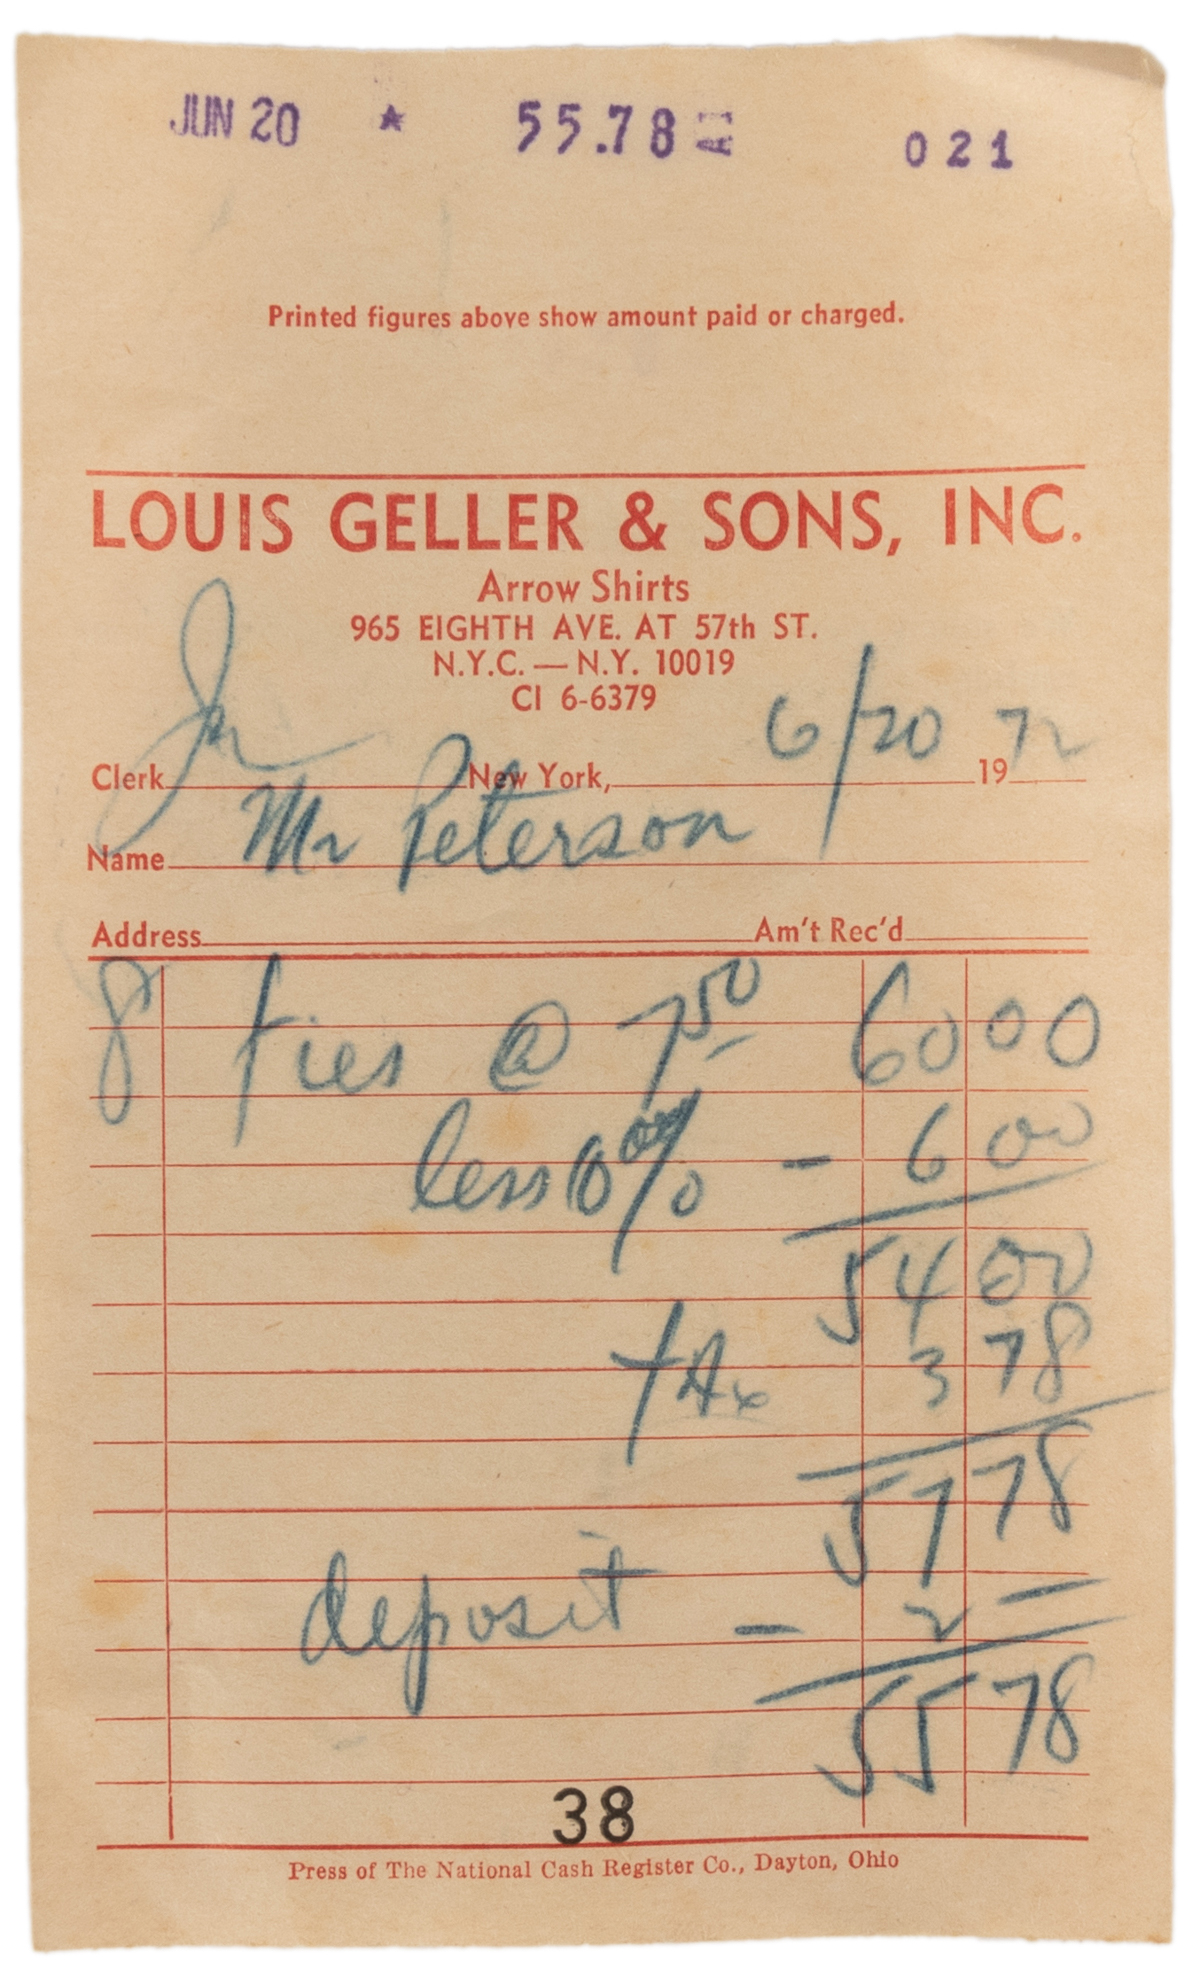 JUN 20 ★ 55.78 021
Printed figures above show amount paid or charged.
LOUIS GELLER & SONS, INC.
Arrow Shirts
965 EIGHTH AVE. AT 57th ST.
N.Y.C. — N.Y. 10019
CI 6-6379
Clerk New York, 6/20 1972
Name Mr Peterson
Address Am't Rec'd
8 ties @ 7 50 60 00
less 10% - 6 00
54 00
tax 3 78
57 78
deposit - 2 =
55 78
38
Press of The National Cash Register Co., Dayton, Ohio